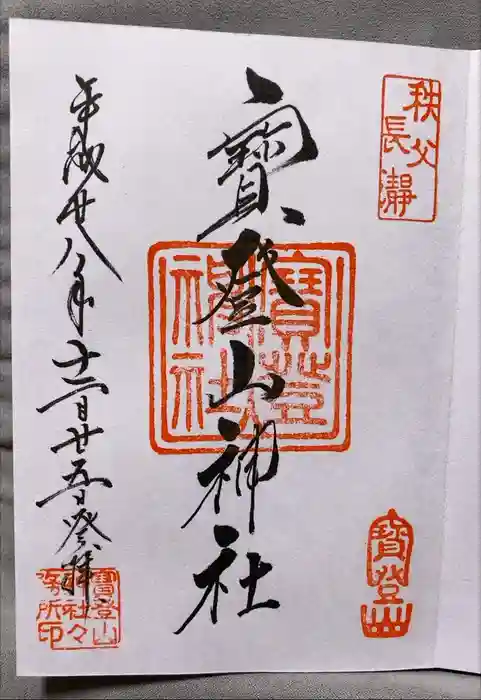 秩父
長瀞
寳登山神社
寳登
神社
寳登山
平成廿八年十二月廿五日登拝
寳登山
神社々
務所印